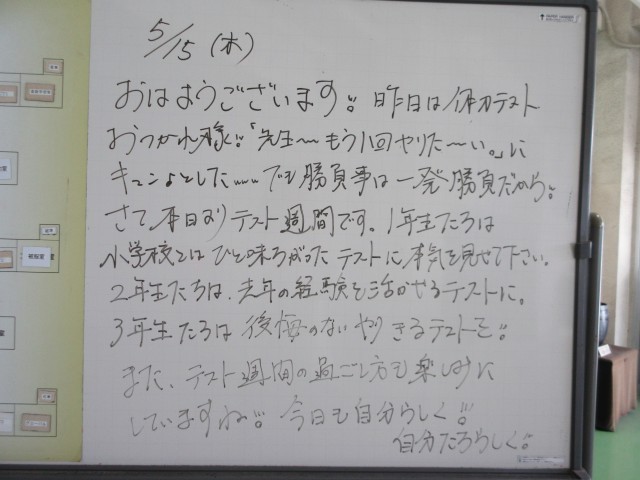 5/15(木)
おはようございます!! 昨日は体力テスト
おつかれ様!!「先生〜もう1回やりた〜い。」に
キュンとした…でも勝負事は一発勝負だから!!
さて、本日よりテスト週間です。1年生たちは
小学校とはひと味ちがったテストに本気を見せて下さい。
2年生たちは、去年の経験を活かせるテストに。
3年生たちは後悔のないやりきるテストを!!
また、テスト週間の過ごし方も楽しみに
していますね!! 今日も自分らしく!!
自分たちらしく!!